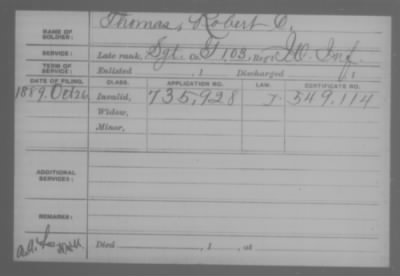 NAME OF SOLDIER: Thomas, Robert C.
SERVICE: Late rank, Sgt. Co. G, 103, Reg't Ill. Inf.
TERM OF SERVICE: Enlisted , 1 Discharged , 1
DATE OF FILING. CLASS. APPLICATION NO. LAW. CERTIFICATE NO.
1889. Oct 26 Invalid, 735,928 J. 549,114
Widow,
Minor,
ADDITIONAL SERVICES:
REMARKS:
Died , 1 , at